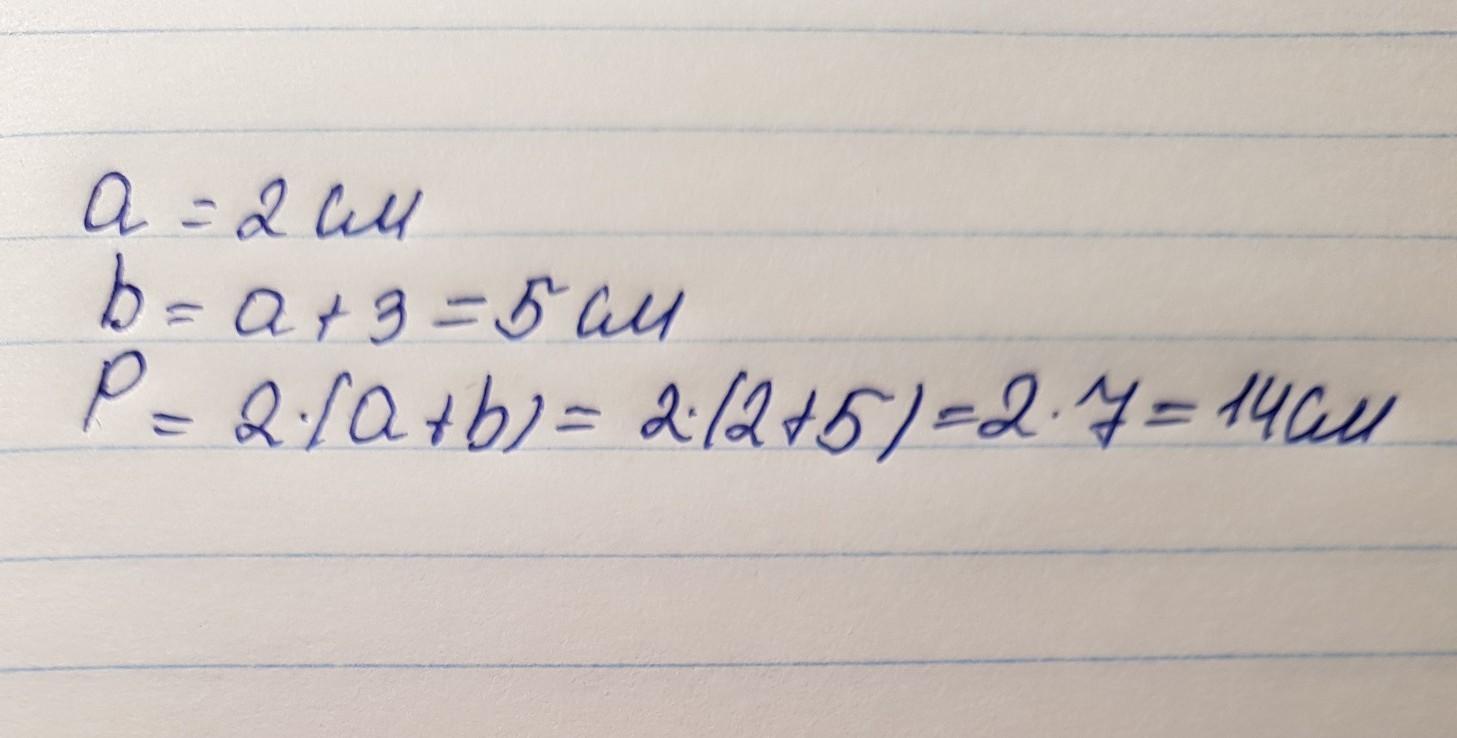 a = 2 см
b = a + 3 = 5 см
P = 2·(a+b) = 2·(2+5) = 2·7 = 14 см